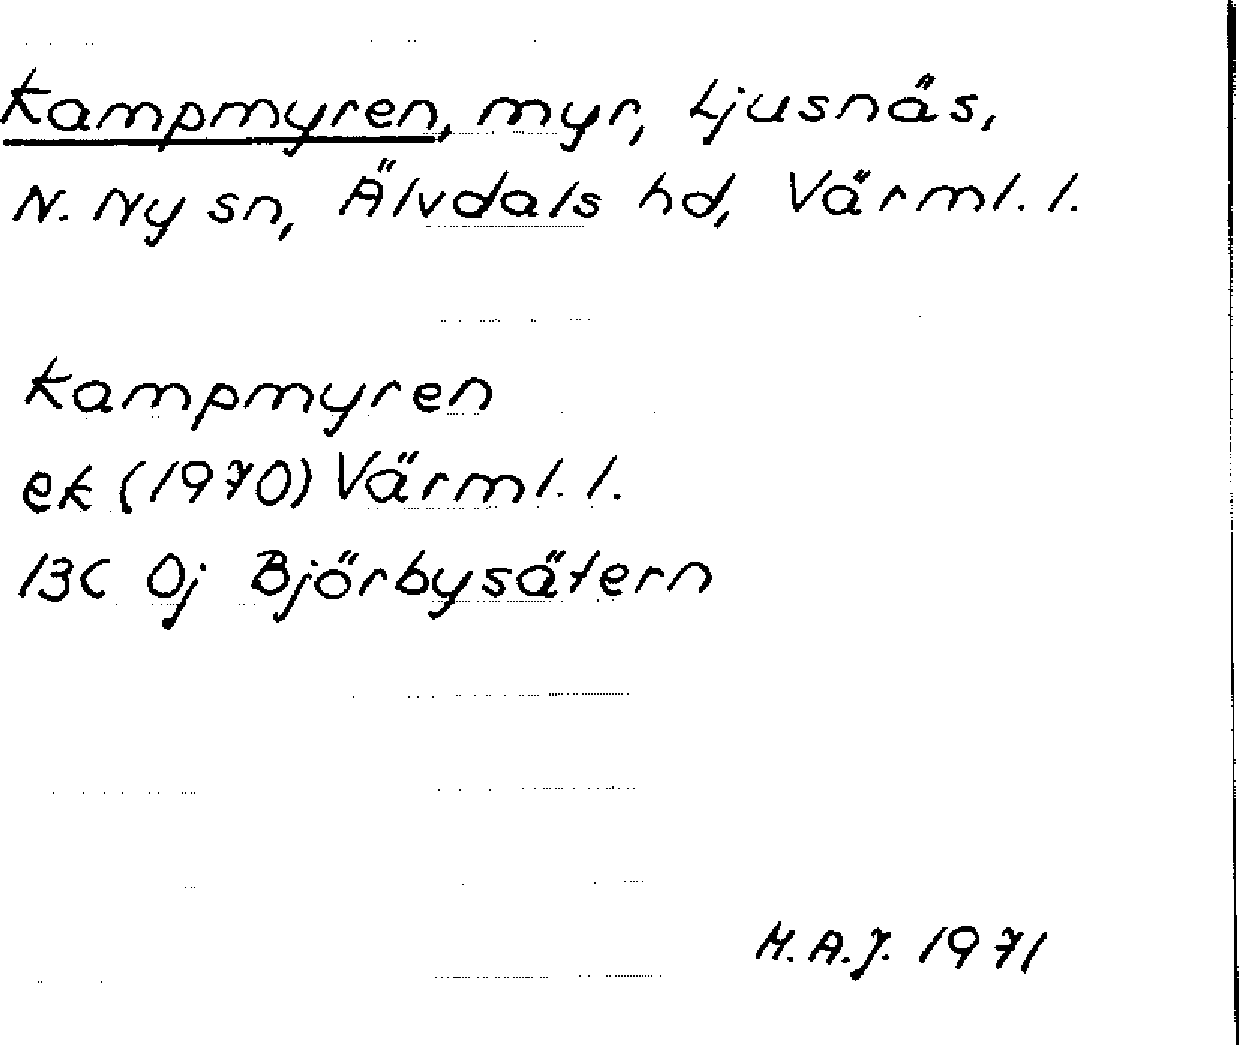 Kampmyren, myr, Ljusnäs,
N. Ny sn, Älvdals hd, Värml. l.
Kampmyren
ek (1970) Värml. l.
13C 0j Björbysätern
H.A.J. 1971